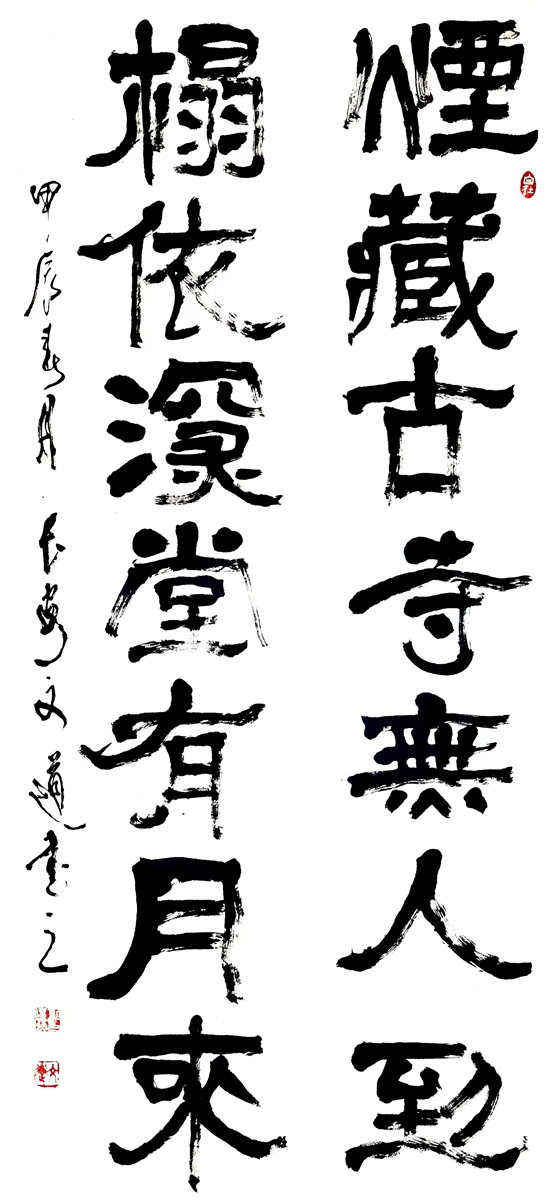 煙藏古寺無人到
榻依深堂有月來
甲辰春月長安文道書之